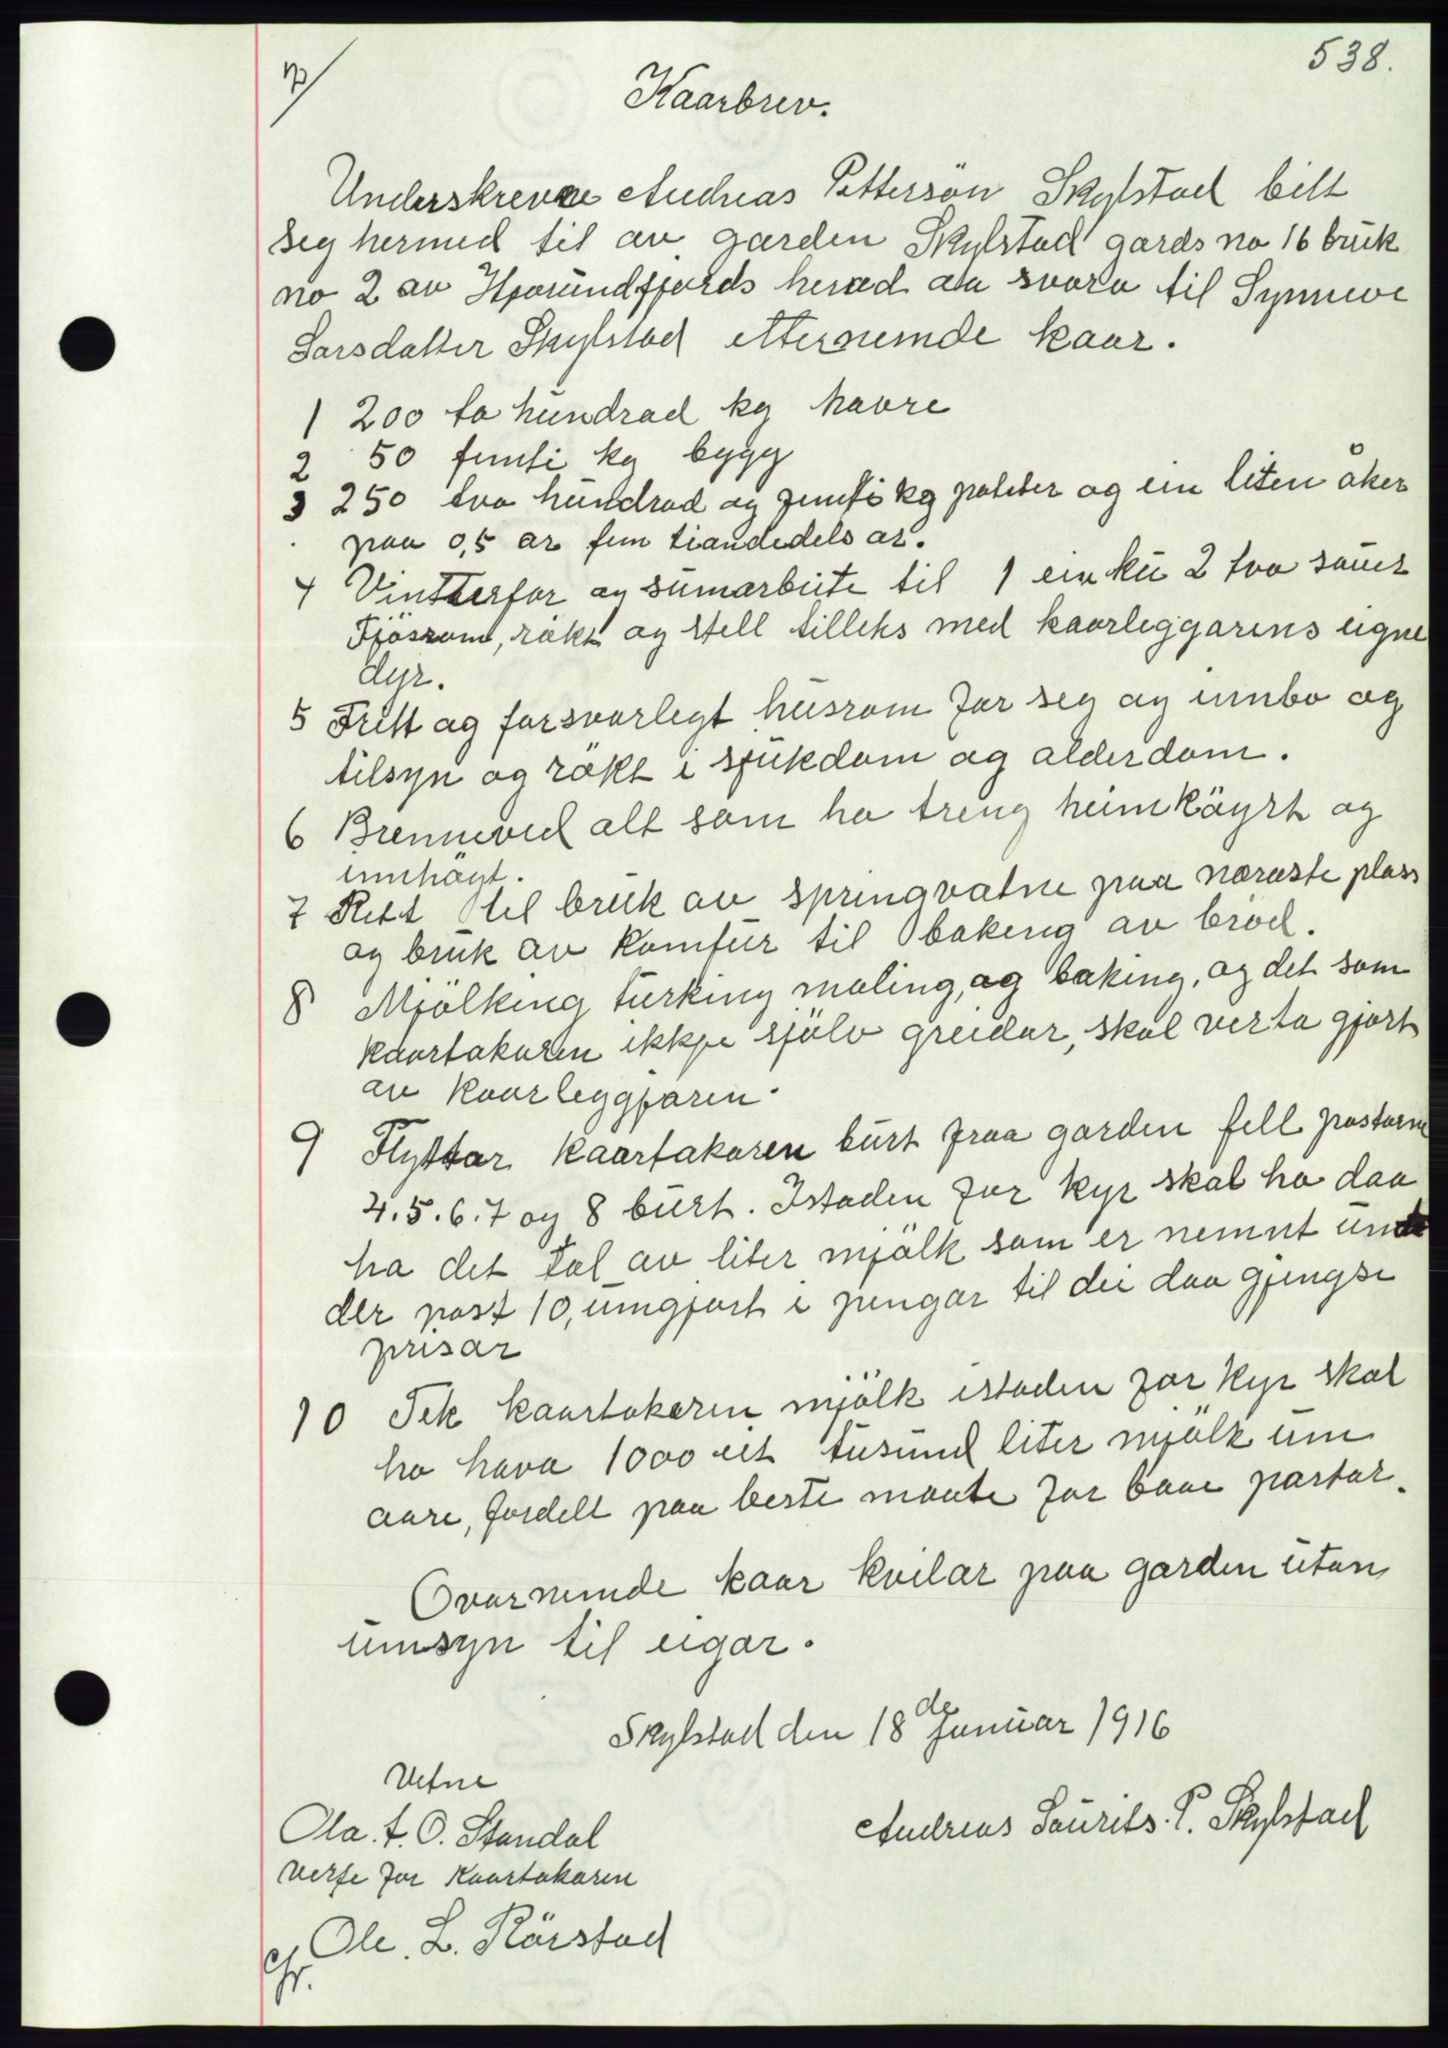 538.
7/
Kaarbrev.
Underskrevne Andreas Pettersön Skylstad bitt
seg hermed til av garden Skylstad gards no 16 bruk
no 2 av Hjorundfjords herad aa svara til Synneve
Larsdatter Skylstad etternemde kaar.
1 200 to hundrad kg havre
2 50 femti kg bygg
3 250 tvo hundrad og femti kg poteter og ein liten åker
paa 0,5 ar fem tiandedels ar.
4 Vintterfor og sumarbeite til 1 ein ku 2 tvo sauer
Fjösrom, rökt og stell tilleks med kaarleggarens eigne
dyr.
5 Fritt og forsvarlegt husrom for seg og innbo og
tilsyn og rökt i sjukdom og alderdom.
6 Brenneved alt som ho treng heimköyrt og
innhögt.
7 Rett til bruk av springvatne paa næraste plass
og bruk av komfur til baking av bröd.
8 Mjölking turking maling, og baking, og det som
kaartakaren ikkje sjölv greidar, skal verta gjort
av kaarleggjaren.
9 Flyttar kaartakaren burt fraa garden fell postarne
4.5.6.7 og 8 burt. Istaden for kyr skal ho daa
ha det tal av liter mjölk som er nemnt un
der post 10, umgjort i pengar til dei daa gjengse
prisar
10 Tek kaartakaren mjölk istaden for kyr skal
ho hava 1000 eit tusund liter mjölk um
aare, fordelt paa beste maate for baae partar.
Ovarnemde kaar kvilar paa garden utan
umsyn til eigar.
Skylstad den 18de Januar 1916
Vitne
Andreas Laurits. P. Skylstad
Ola. t. O. Standal
verje for kaartakaren
Ole. L. Rörstad